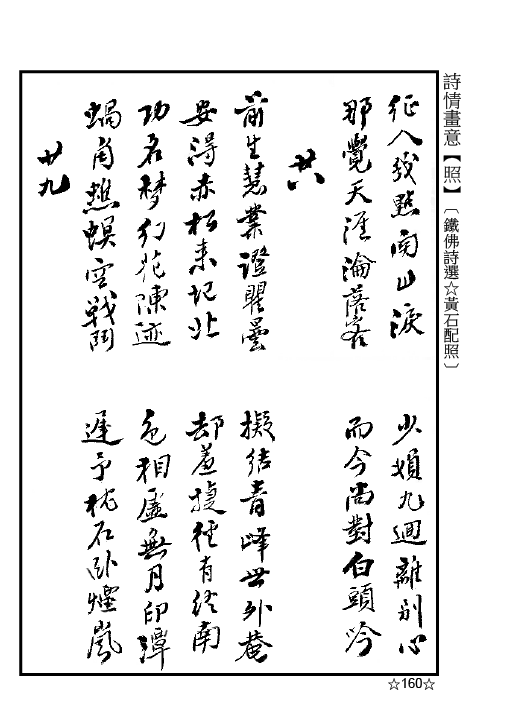 詩情畫意【照】〔鐵佛詩選☆黃石配照〕
征人幾點南山淚
少婦九迴離別心
那覺天涯淪落客
而今尚對白頭吟
廿八
前生慧業證瞿曇
擬結青峰世外菴
安得赤松來圯北
却羞捷徑有終南
功名夢幻花陳迹
色相虛無月印潭
蝸角蟭螟空戰鬥
遲予枕石臥煙嵐
廿九
☆160☆